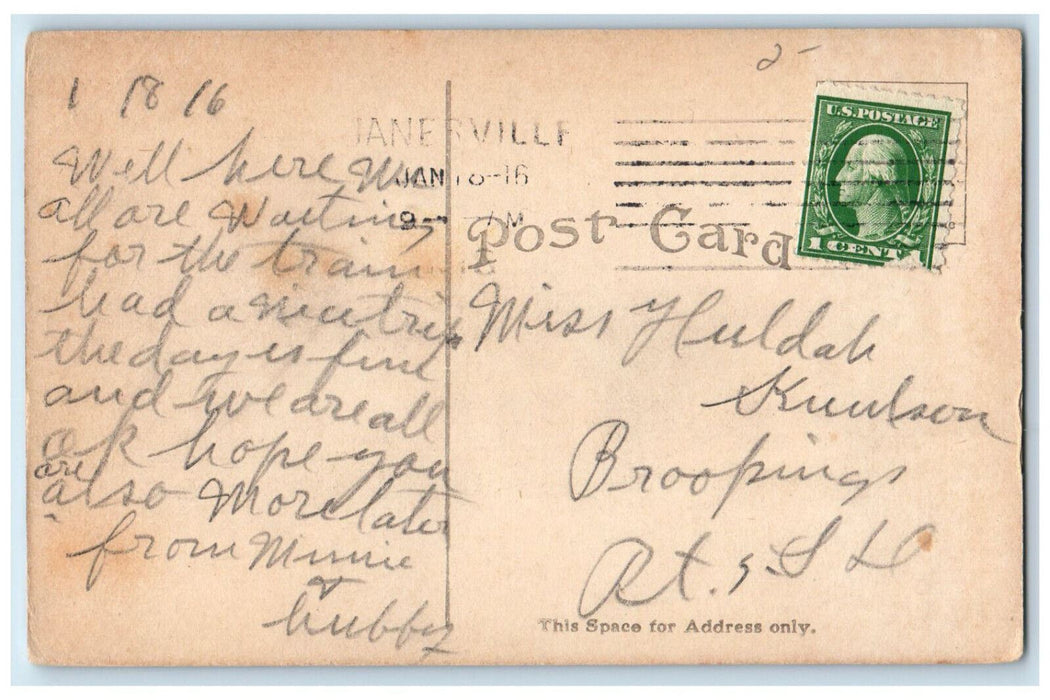 1 18 16
Well here We
all are Waiting
for the train
had a nice trip
the day is fine
and we are all
ok hope you
are
also More later
from Minnie
&
hubby
2-
JANESVILLE
JAN 18-16
9- M
U.S. POSTAGE
1 CENT 1
Post Card
Miss Huldah
Knudson
Brookings
Rt. 5 S D
This Space for Address only.